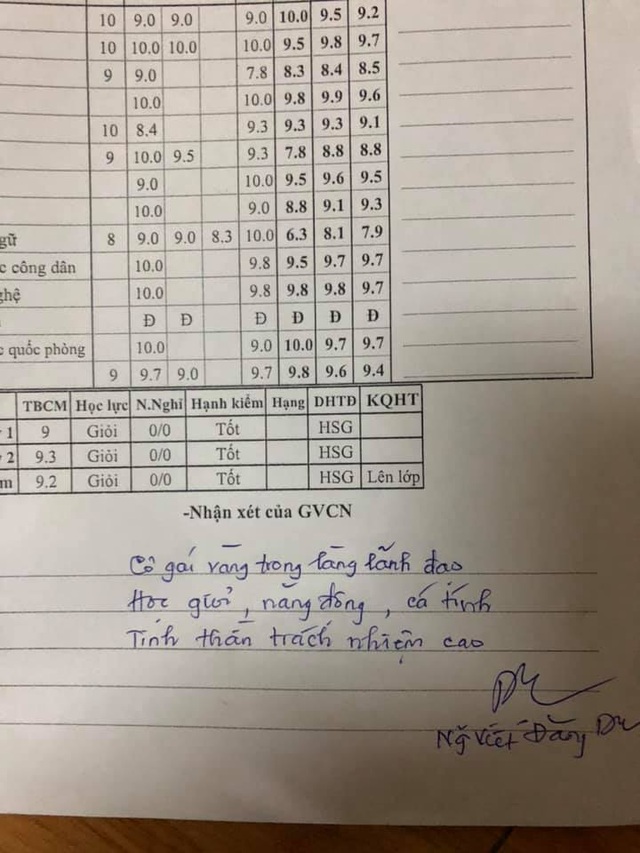 10 9.0 9.0 9.0 10.0 9.5 9.2
10 10.0 10.0 10.0 9.5 9.8 9.7
9 9.0 7.8 8.3 8.4 8.5
10.0 10.0 9.8 9.9 9.6
10 8.4 9.3 9.3 9.3 9.1
9 10.0 9.5 9.3 7.8 8.8 8.8
9.0 10.0 9.5 9.6 9.5
10.0 9.0 8.8 9.1 9.3
gữ 8 9.0 9.0 8.3 10.0 6.3 8.1 7.9
c công dân 10.0 9.8 9.5 9.7 9.7
ghệ 10.0 9.8 9.8 9.8 9.7
Đ Đ Đ Đ Đ Đ
c quốc phòng 10.0 9.0 10.0 9.7 9.7
9 9.7 9.0 9.7 9.8 9.6 9.4
TBCM Học lực N.Nghỉ Hạnh kiểm Hạng DHTĐ KQHT
1 9 Giỏi 0/0 Tốt HSG
2 9.3 Giỏi 0/0 Tốt HSG
m 9.2 Giỏi 0/0 Tốt HSG Lên lớp
-Nhận xét của GVCN
Cô gái vàng trong làng lãnh đạo
Học giỏi, năng động, cá tính
Tinh thần trách nhiệm cao
Ng Viết Đăng Du